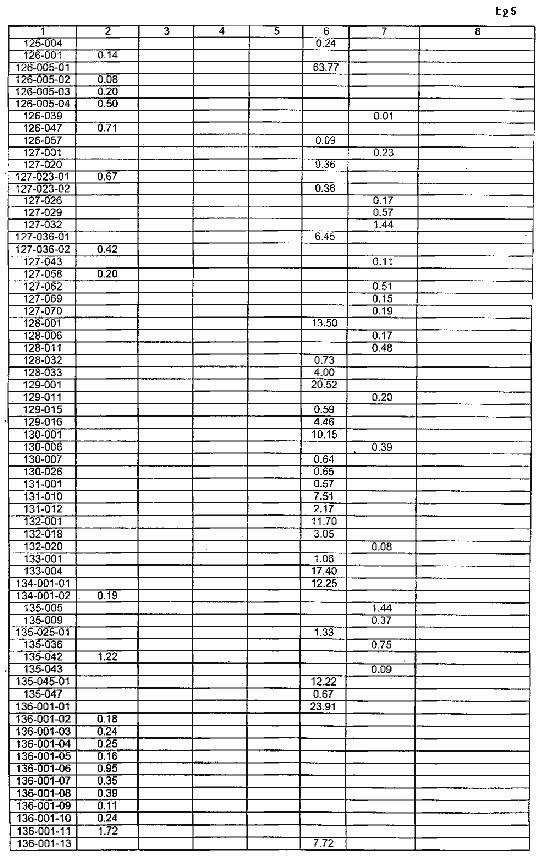 1 2 3 4 5 6 7 8
125-004 0.24
126-001 0.14
126-005-01 63.77
126-005-02 0.08
126-005-03 0.20
126-005-04 0.50
126-039 0.01
126-047 0.71
126-057 0.09
127-001 0.23
127-020 0.36
127-023-01 0.67
127-023-02 0.36
127-026 0.17
127-029 0.57
127-032 1.44
127-036-01 6.45
127-036-02 0.42
127-043 0.11
127-058 0.20
127-062 0.51
127-069 0.15
127-070 0.19
128-001 13.50
128-006 0.17
128-011 0.48
128-032 0.73
128-033 4.00
129-001 20.52
129-011 0.20
129-015 0.59
129-016 4.46
130-001 10.15
130-006 0.39
130-007 0.64
130-026 0.65
131-001 0.57
131-010 7.51
131-012 2.17
132-001 11.70
132-018 3.05
132-020 0.08
133-001 1.06
133-004 17.40
134-001-01 12.25
134-001-02 0.19
135-005 1.44
135-009 0.37
135-025-01 1.33
135-036 0.75
135-042 1.22
135-043 0.09
135-045-01 12.22
135-047 0.67
136-001-01 23.91
136-001-02 0.18
136-001-03 0.24
136-001-04 0.25
136-001-05 0.16
136-001-06 0.95
136-001-07 0.35
136-001-08 0.39
136-001-09 0.11
136-001-10 0.24
136-001-11 1.72
136-001-13 7.72